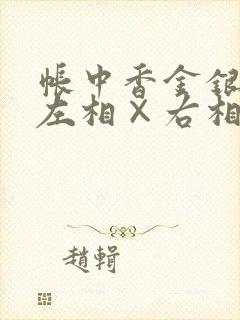 帳中香金銀
左相×右相
趙輯